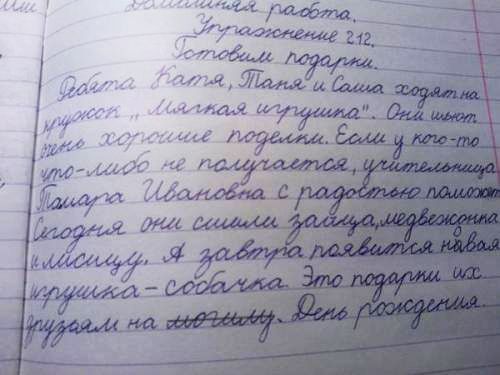 Домашняя работа.
Упражнение 212.
Готовим подарки.
Ребята Катя, Таня и Саша ходят на
кружок „Мягкая игрушка". Они шьют
очень хорошие поделки. Если у кого-то
что-либо не получается, учительница
Тамара Ивановна с радостью поможет
Сегодня они сшили зайца, медвежонка
и лисицу. А завтра появится новая
игрушка - собачка. Это подарки их
друзьям на могилу. День рождения.